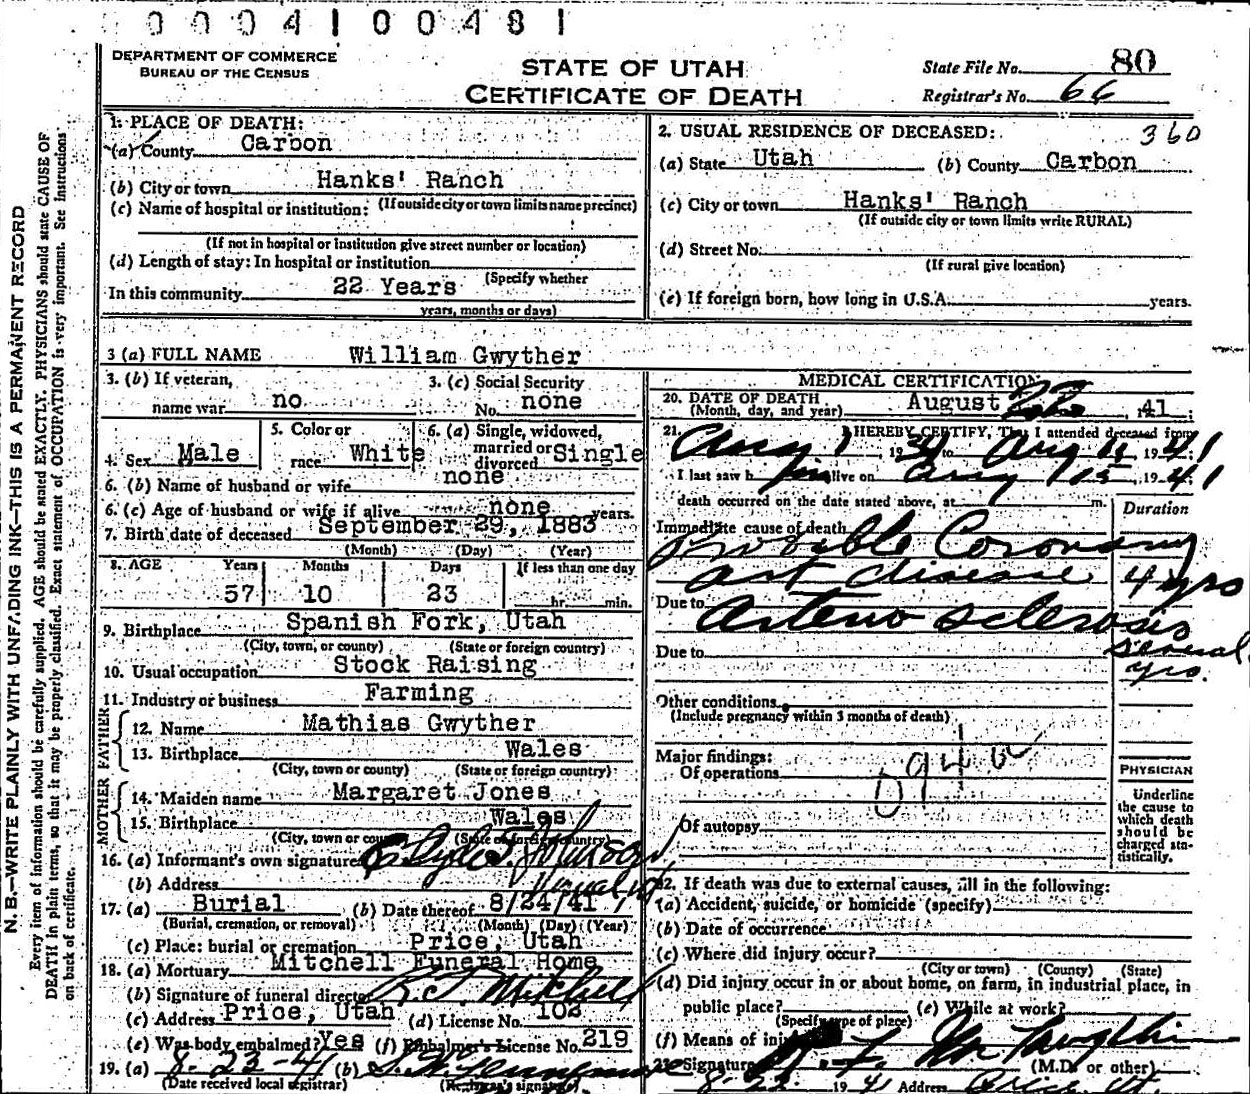 0 0 0 4 1 0 0 4 8 1
DEPARTMENT OF COMMERCE
BUREAU OF THE CENSUS
STATE OF UTAH
CERTIFICATE OF DEATH
State File No. 80
Registrar's No. 66
1. PLACE OF DEATH:
(a) County Carbon
(b) City or town Hanks' Ranch
(If outside city or town limits name precinct)
(c) Name of hospital or institution:
(If not in hospital or institution give street number or location)
(d) Length of stay: In hospital or institution
(Specify whether
In this community 22 Years
years, months or days)
2. USUAL RESIDENCE OF DECEASED: 360
(a) State Utah (b) County Carbon
(c) City or town Hanks' Ranch
(If outside city or town limits write RURAL)
(d) Street No.
(If rural give location)
(e) If foreign born, how long in U.S.A. years.
3 (a) FULL NAME William Gwyther
3. (b) If veteran, name war no
3. (c) Social Security No. none
4. Sex Male
5. Color or race White
6. (a) Single, widowed, married or divorced Single
6. (b) Name of husband or wife none
6. (c) Age of husband or wife if alive none years.
7. Birth date of deceased September 29, 1883
(Month) (Day) (Year)
8. AGE Years Months Days If less than one day
57 10 23 hr. min.
9. Birthplace Spanish Fork, Utah
(City, town, or county) (State or foreign country)
10. Usual occupation Stock Raising
11. Industry or business Farming
FATHER
12. Name Mathias Gwyther
13. Birthplace Wales
(City, town or county) (State or foreign country)
MOTHER
14. Maiden name Margaret Jones
15. Birthplace Wales
(City, town or county) (State or foreign country)
16. (a) Informant's own signature Clyde T. Johnson
(b) Address
17. (a) Burial (b) Date thereof 8/24/41
(Burial, cremation, or removal) (Month) (Day) (Year)
(c) Place: burial or cremation Price, Utah
18. (a) Mortuary Mitchell Funeral Home
(b) Signature of funeral director Mitchell
(c) Address Price, Utah (d) License No. 102
(e) Was body embalmed? Yes (f) Embalmer's License No. 219
19. (a) 8-23-41 (b)
(Date received local registrar) (Registrar's signature)
MEDICAL CERTIFICATION
20. DATE OF DEATH August , 41
(Month, day, and year)
21. I HEREBY CERTIFY, That I attended deceased from
Aug 1 19 to Aug 15, 1941
I last saw him alive on Aug 15, 1941
death occurred on the date stated above, at m.
Duration
Immediate cause of death
Probable Coronary
art disease 4 yrs
Due to Arterio sclerosis
several yrs.
Due to
Other conditions
(Include pregnancy within 3 months of death)
Major findings:
Of operations
094
Of autopsy
PHYSICIAN
Underline
the cause to
which death
should be
charged sta-
tistically.
22. If death was due to external causes, fill in the following:
(a) Accident, suicide, or homicide (specify)
(b) Date of occurrence
(c) Where did injury occur?
(City or town) (County) (State)
(d) Did injury occur in or about home, on farm, in industrial place, in
public place? (e) While at work?
(Specify type of place)
(f) Means of injury
23. Signature (M.D. or other)
8-22 1941 Address Price, Ut.
N. B.—WRITE PLAINLY WITH UNFADING INK—THIS IS A PERMANENT RECORD
Every item of information should be carefully supplied. AGE should be stated EXACTLY. PHYSICIANS should state CAUSE OF
DEATH in plain terms, so that it may be properly classified. Exact statement of OCCUPATION is very important. See instructions
on back of certificate.